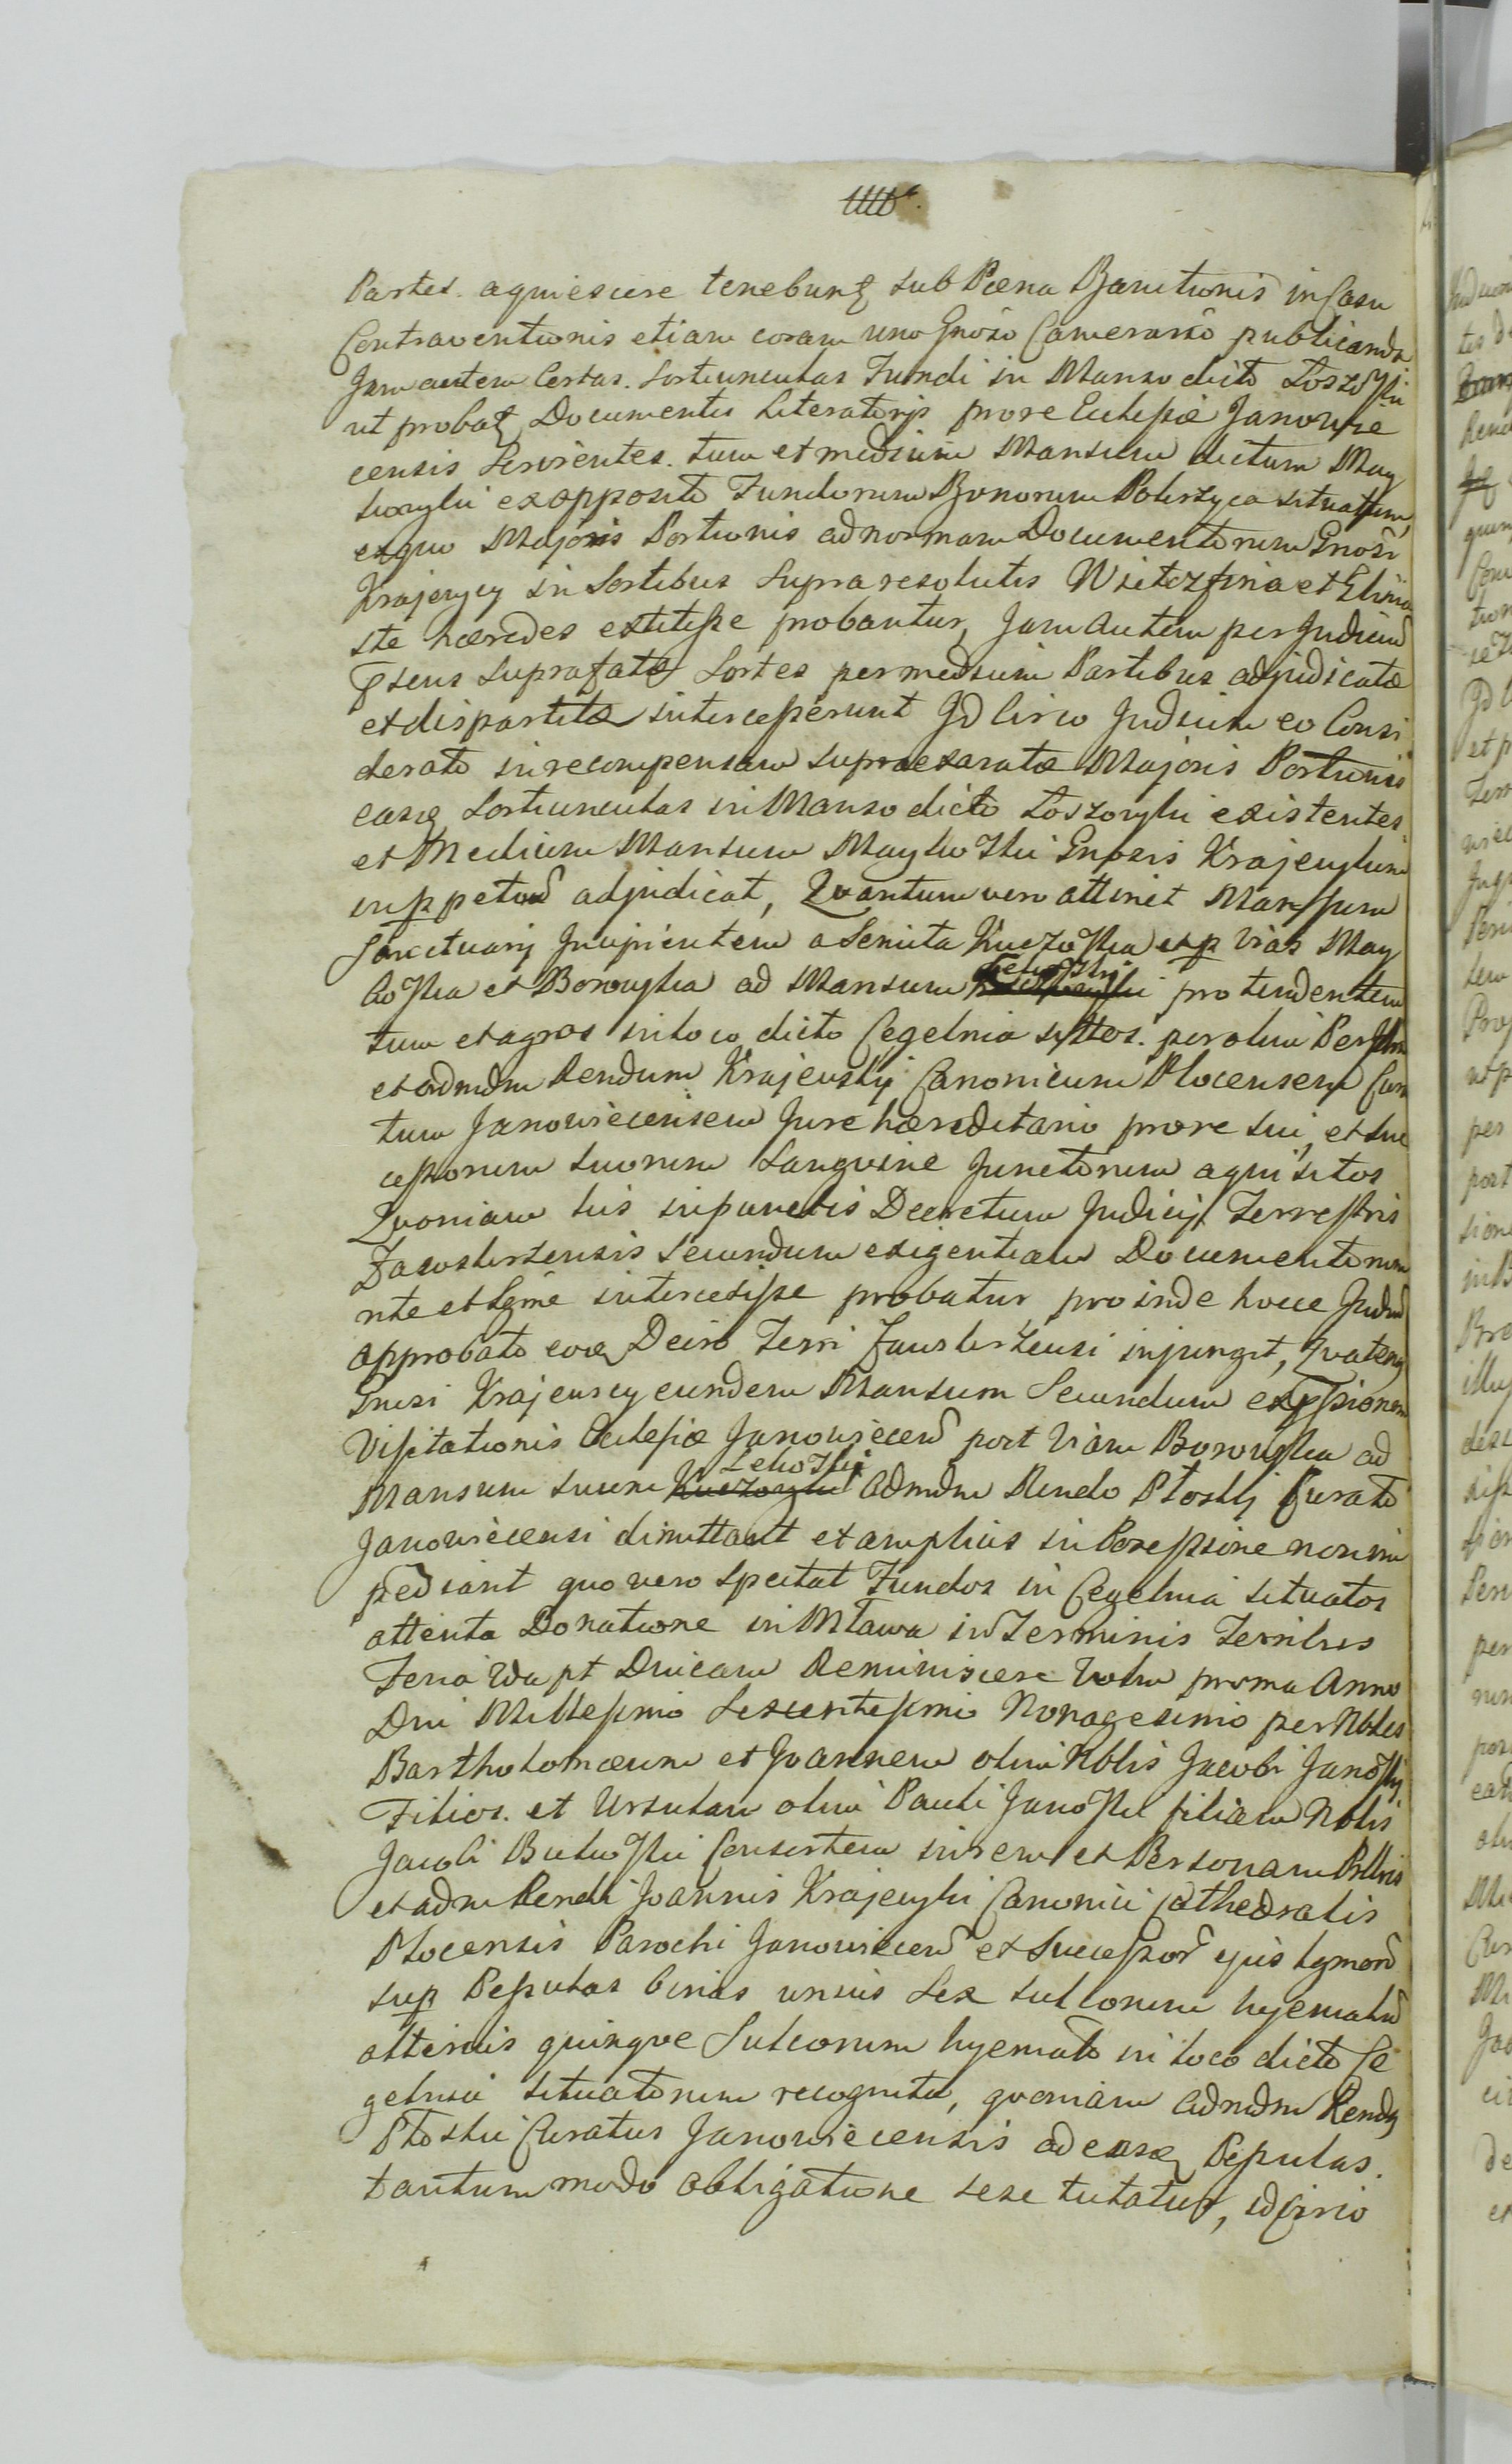 Partes. aquiescere tenebunt sub Pæna Banitionis in Casu
Contraventionis etiam coram uno Gnoso Camerario publicanda
Jam autem Certas. Sortiunculas Fundi in Manso dicto Łoszoski
ut probat Documentis Literatorijs pro re Eclesiæ Janowie
censis Servientes. tum et medium Mansum dictum May
kowski ex opposito Fundorum Bonorum Pokrzywa situatum,
ex quo Majoris Portionis ad normam Documentorum Gnosi
Krajewscy in Sortibus Supra resolutis
ste hæredes extitisse probantur, Jam autem per Judicium
pñs suprafatæ Sortes per medium Partibus adjudicatæ
et dispartitæ intercesserunt Id Circo Judicium eo Consi
derato in recompensam supraexaratæ Majoris Portionis
easq Sortiunculas in Manso dicto Łoszowski existentes.
et Medium Mansum Maykoski Gnosis Krajewskim
in ppetuū adjudicat, Quantum vero attinet Mansum
Sanctuarij Incipientem a Semita et p Vias May
koska et Borowska ad Mansum Lekoski protendentem
tum et agros in loco dicto Cegelnia sittos. per olim
et admdm Rendum Krajewskij Canonicum Plocensem Cura
tum Janowiecensem Jure hæreditario pro re sui, et suc
cessorum suorum Sanguine Junctorum aquisitos
Quoniam his in punctis Decretum Judicij Terrestris
Zawskrzensis secundum exigentiam Documentorum
rite et lgme intercessisse probatur, proinde hocce Judm
approbato eoq Decro Terri Zawskrzensi injungit, Quatenq
Gnosi Krajewscy eundem Mansum Secundum expssionem
Visitationis Eclesiæ Janowiecen post Viam Borowska ad
Mansum suum Lekoski Admdm Rendo Płoskj Curato
Janowiecensi dimittant et amplius in Possessione non im
pediant quo vero spectat Fundos in Cegelnia situatos
attenta Donatione in Mława in Terminis Terribus
Feria IVta pt Dnicam Reminiscere proma Anno
Dni Millesimo Sexcentesimo Nonagesimo per Nbles
Bartholomæum et Joannem olim Nblis Jacobi Janoskj
Filios. et Ursulam olim Pauli Janoski filiam Nblis
Jacobi Bukoski Consortem in rem et Personam Pllris
et adm Rendi Joannis Krajewski Canonici Cathedralis
Plocensis Parochi Janowiecen et Successor ejus lgmor
sup Pesulas binas unius Sex sulcorum hyemalu
alterius quinque Sulcorum hyemalo in loco dicto Ce
gelnia situatorum recognita, quoniam Admdm Rends
Płoski Curatus Janowiecensis ad easq Pesulas.
tantum modo obligatione sese tutatur, idcirco